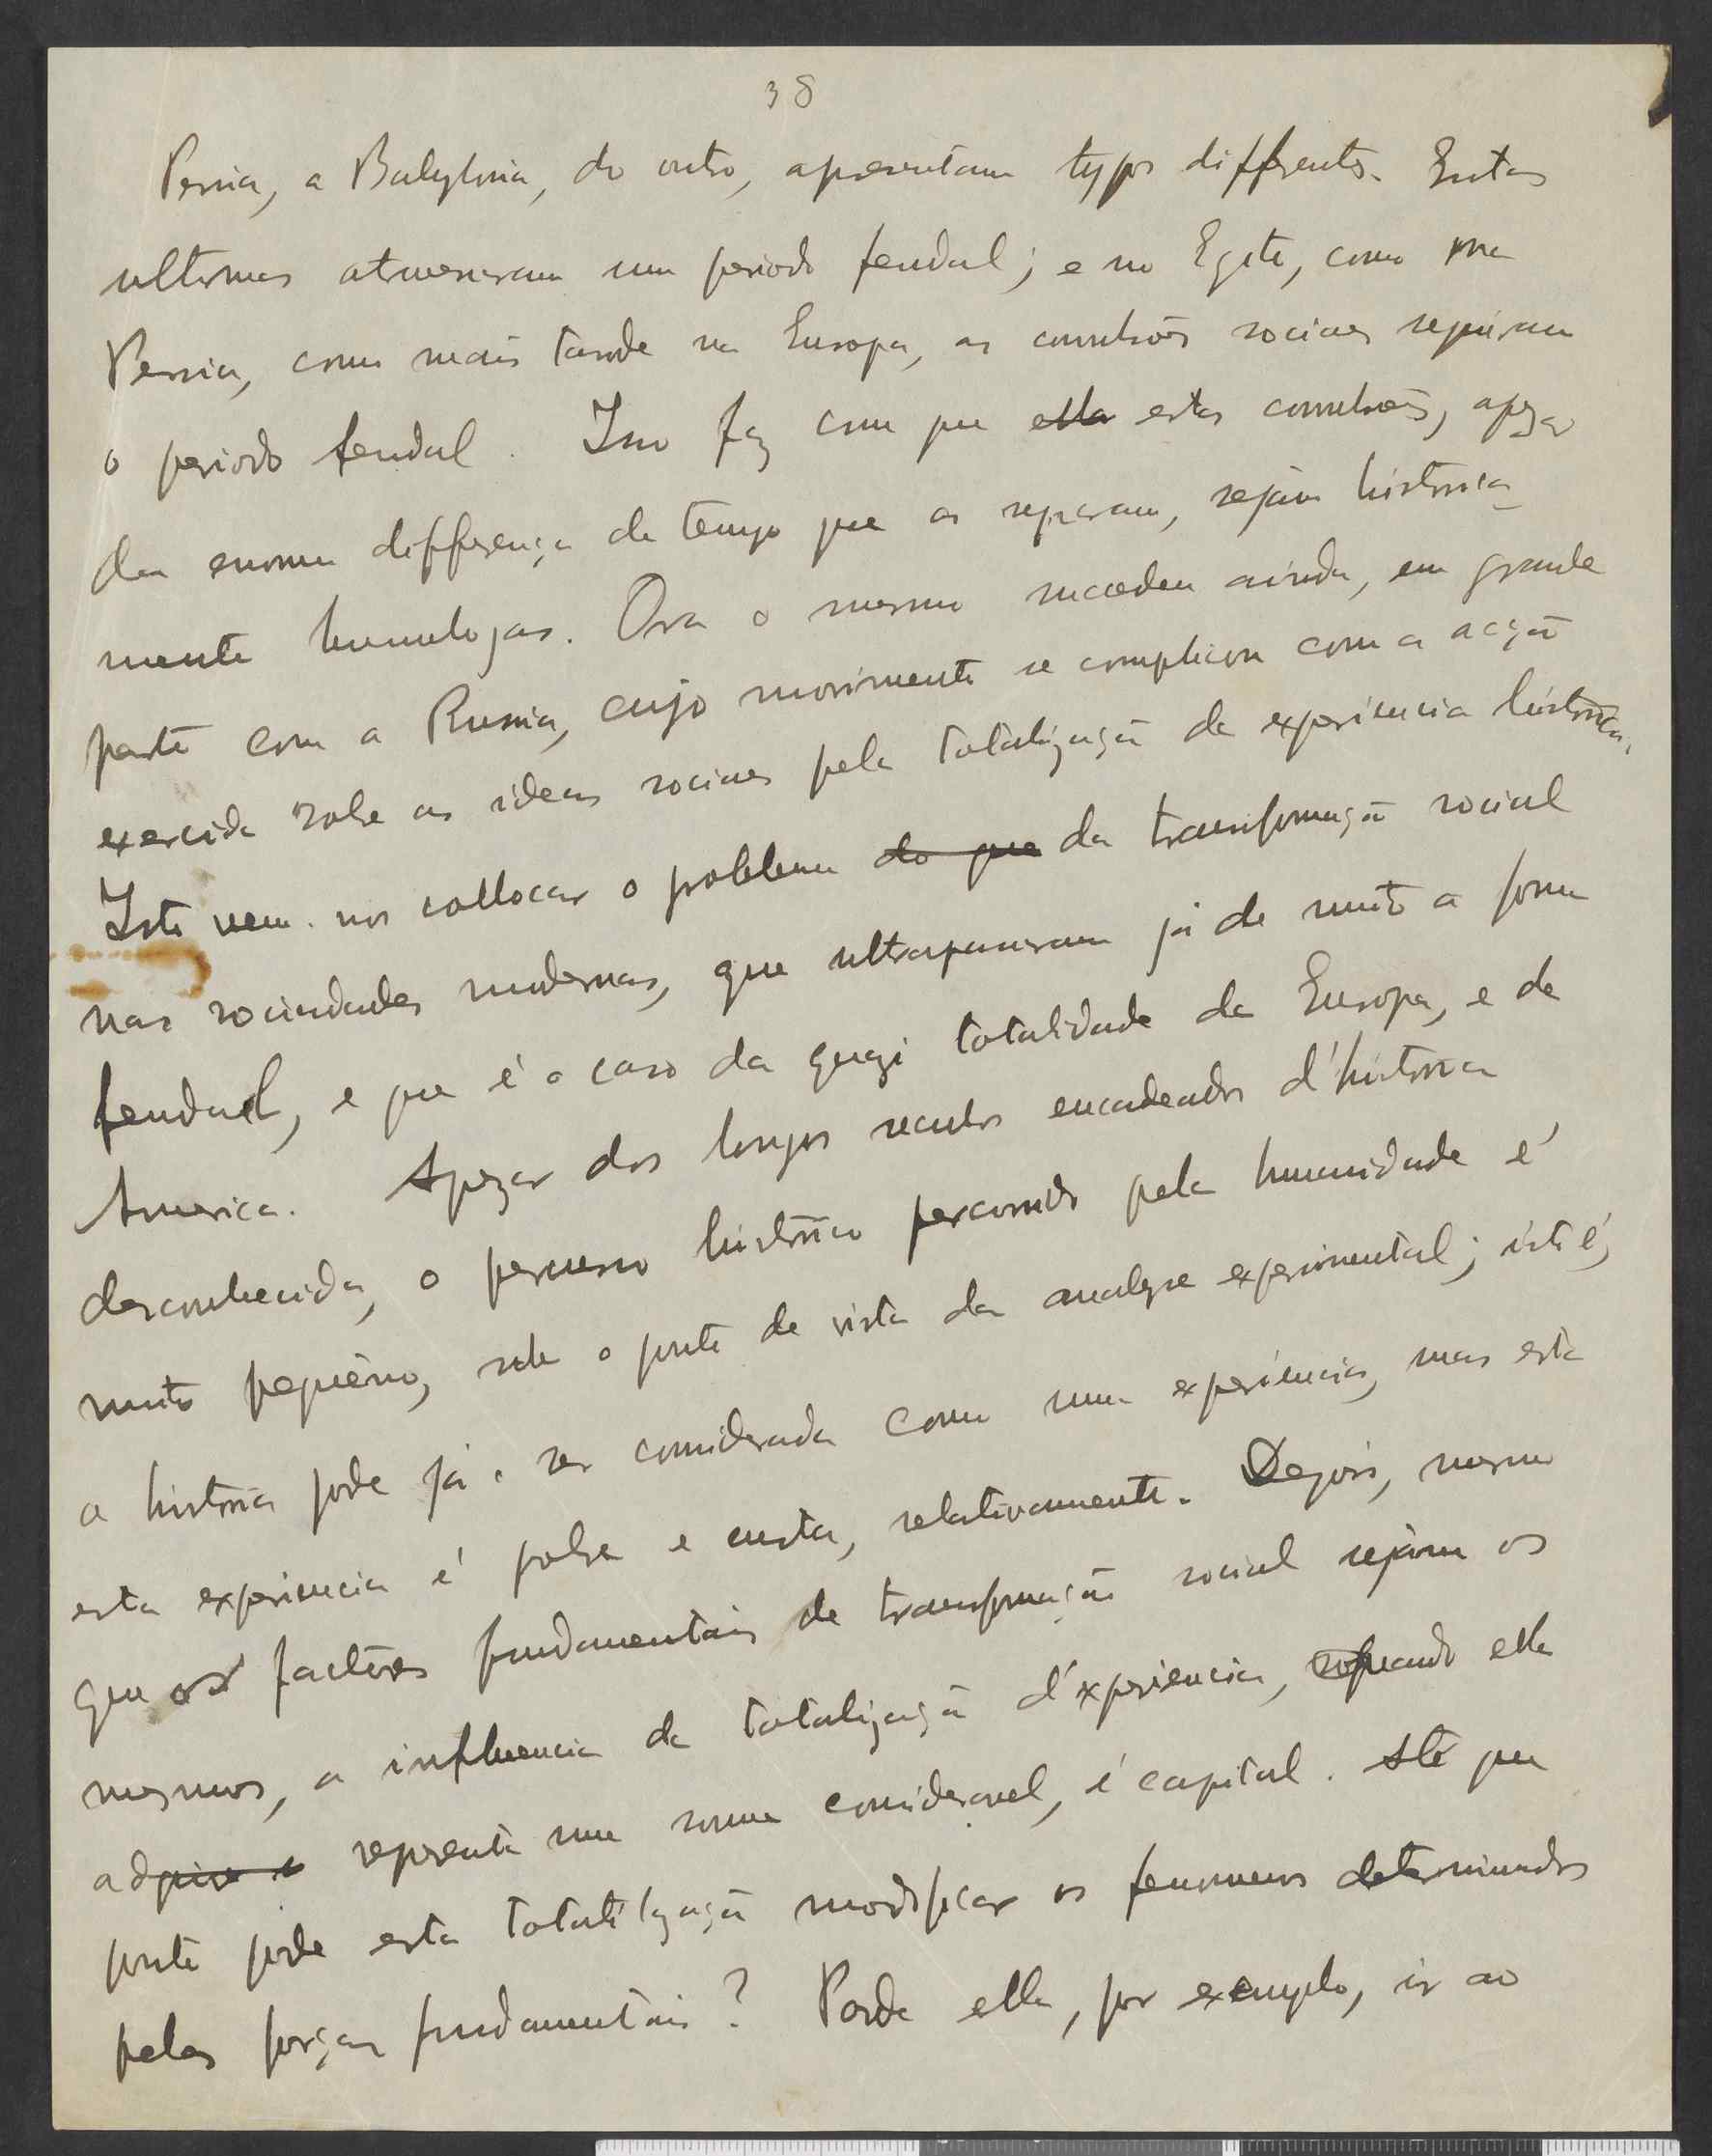 38
Persia, a Babylonia, do outro, apresentam typos differentes. Estas
ultimas atravessaram um periodo feudal; e no Egito, como na
Persia, como mais tarde na Europa, as convulsões sociaes seguiram
o periodo feudal. Isso faz com que ella estas convulsões, apezar
da enorme differença de tempo que as separam, sejam historica-
mente homologas. Ora o mesmo succedeu ainda, em grande
parte com a Russia, cujo movimento se complicou com a acção
exercida sobre as ideas sociaes pela totalização da experiencia historica.
Isto vem nos collocar o problema do que da transformação social
nas sociedades modernas, que ultrapassaram já de muito a forma
feudal, e que é o caso da quazi totalidade da Europa, e da
America. Apezar dos longos seculos encadeados d'historia
desconhecida, o percurso historico percorrido pela humanidade é
muito pequeno, sob o ponto de vista da analyse experimental; isto é,
a historia pode já ser considerada como uma experiencia, mas esta
esta experiencia é pobre e curta, relativamente. Depois, mesmo
que os factores fundamentais de transformação social sejam os
mesmos, a influencia da totalização d'experiencia, quando ella
adquire e representa uma somma consideravel, é capital. Até que
ponto pode esta totalização modificar os fenomenos determinados
pelas forças fundamentais? Pode ella, por exemplo, ir ao